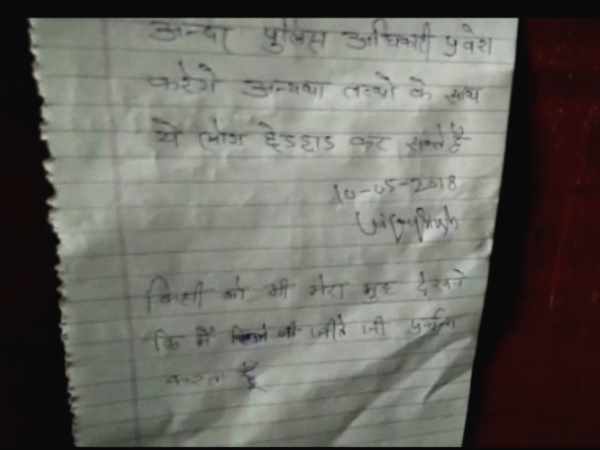 अन्दर पुलिस अधिकारी प्रवेश
करेंगे अन्यथा तथ्यो के साथ
ये लोग छेडछाड कर सकते है
10-05-2018
किसी को भी मेरा मुह देखने
कि मैं जीते जी
करता हूँ